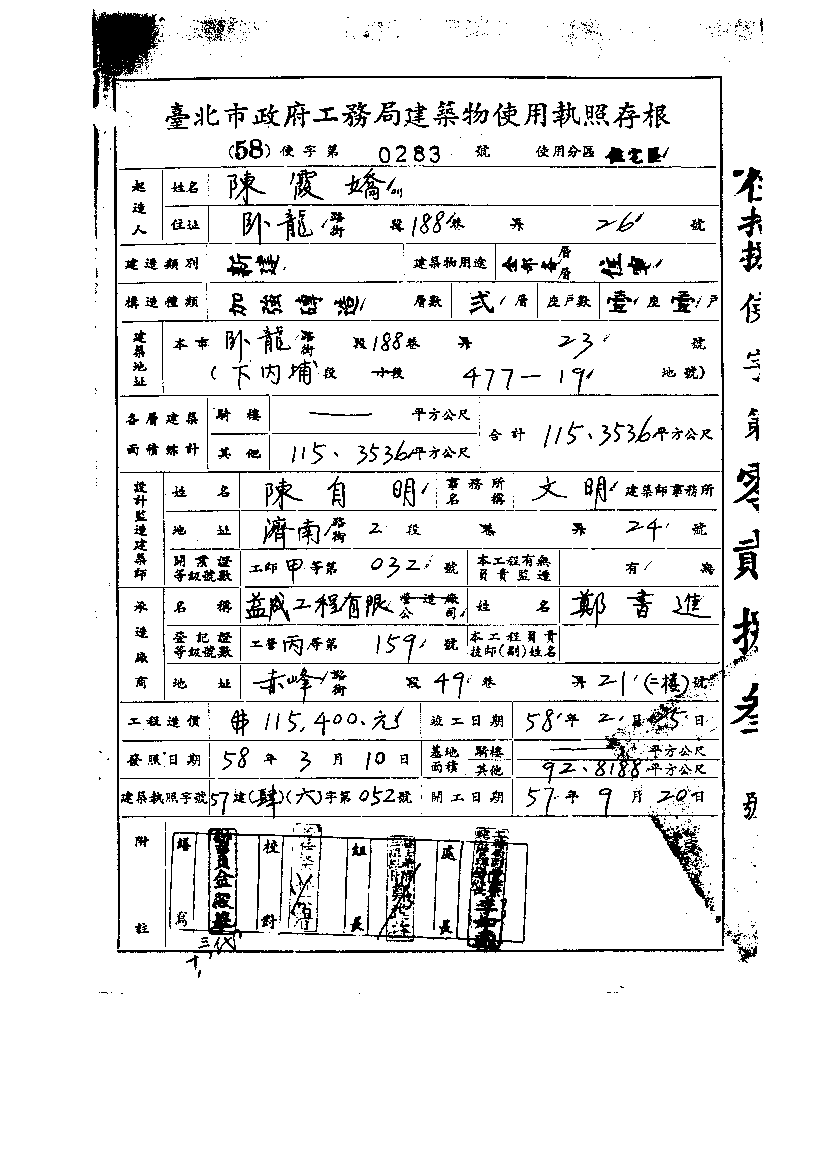 臺北市政府工務局建築物使用執照存根
(58)使字第 0283 號 使用分區 住宅區
起造人 姓名 陳霞嬌
住址 卧龍路街 段188巷 弄 26 號
建造類別 新建 建築物用途 全部各層層 住家
構造種類 加強磚造 層數 貳層 座戶數 壹座壹戶
建築地址 本市 卧龍路街 段188巷 弄 23 號
(下內埔段 小段 477-19 地號)
各層建築面積總計 騎樓 —— 平方公尺 合計 115.3536平方公尺
其他 115.3536平方公尺
設計監造建築師 姓名 陳自明 事務所名稱 文明 建築師事務所
地址 濟南路街 2段 巷 弄 24 號
開業證等級號數 工師甲等第 032 號 本工程有無負責監造 有 無
承造廠商 名稱 益成工程有限營造廠公司 姓名 鄭書進
登記證等級號數 工營丙等第 159 號 本工程負責技師(副)姓名
地址 赤峰路街 段 49巷 弄 21(二樓)號
工程造價 115,400.元 竣工日期 58年2月25日
發照日期 58年3月10日 基地面積 騎樓 —— 平方公尺
其他 92.8188平方公尺
建築執照字號 57建(肆)(六)字第052號 開工日期 57年9月20日
附註 繕寫 校對 組長 處長
代
使字第零貳捌叁號